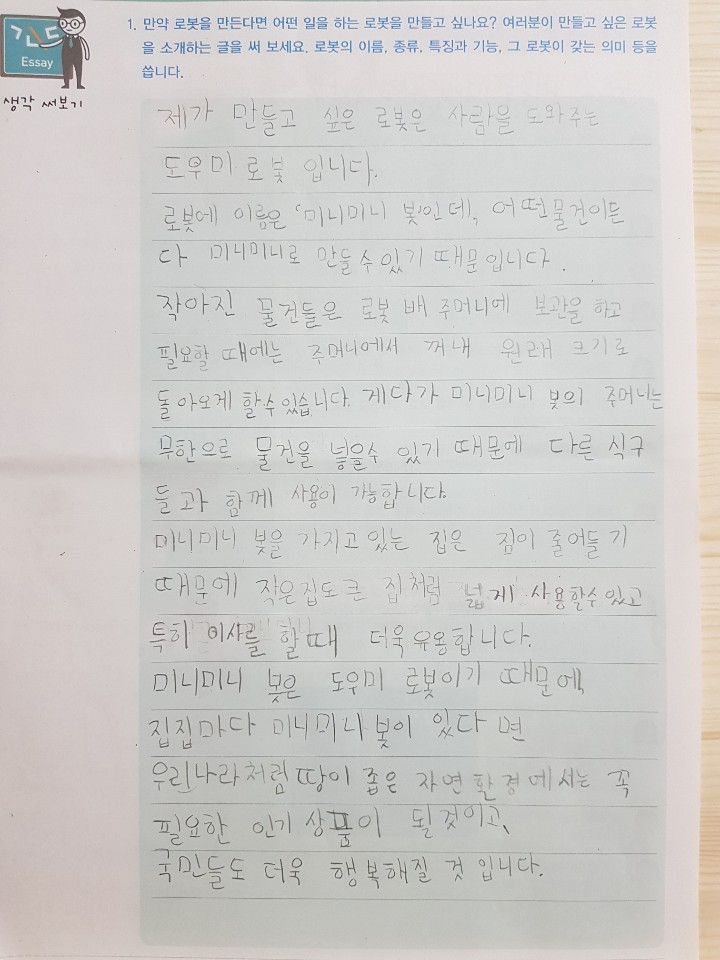 Essay
생각 써보기
1. 만약 로봇을 만든다면 어떤 일을 하는 로봇을 만들고 싶나요? 여러분이 만들고 싶은 로봇
을 소개하는 글을 써 보세요. 로봇의 이름, 종류, 특징과 기능, 그 로봇이 갖는 의미 등을
씁니다.
제가 만들고 싶은 로봇은 사람을 도와주는
도우미 로봇 입니다.
로봇에 이름은 '미니미니 봇'인데, 어떤물건이든
다 미니미니로 만들수있기 때문입니다.
작아진 물건들은 로봇 배 주머니에 보관을 하고
필요할 때에는 주머니에서 꺼내 원래 크기로
돌아오게 할수있습니다. 게다가 미니미니 봇의 주머니는
무한으로 물건을 넣을수 있기 때문에 다른 식구
들과 함께 사용이 가능합니다.
미니미니 봇을 가지고있는 집은 짐이 줄어들기
때문에 작은집도큰 집처럼 넓게 사용할수있고
특히 이사를 할때 더욱유용합니다.
미니미니 봇은 도우미 로봇이기 때문에,
집집마다 미니미니봇이 있다면
우리나라처럼 땅이 좁은 자연환경에서는 꼭
필요한 인기 상품이 될것이고,
국민들도 더욱 행복해질 것 입니다.